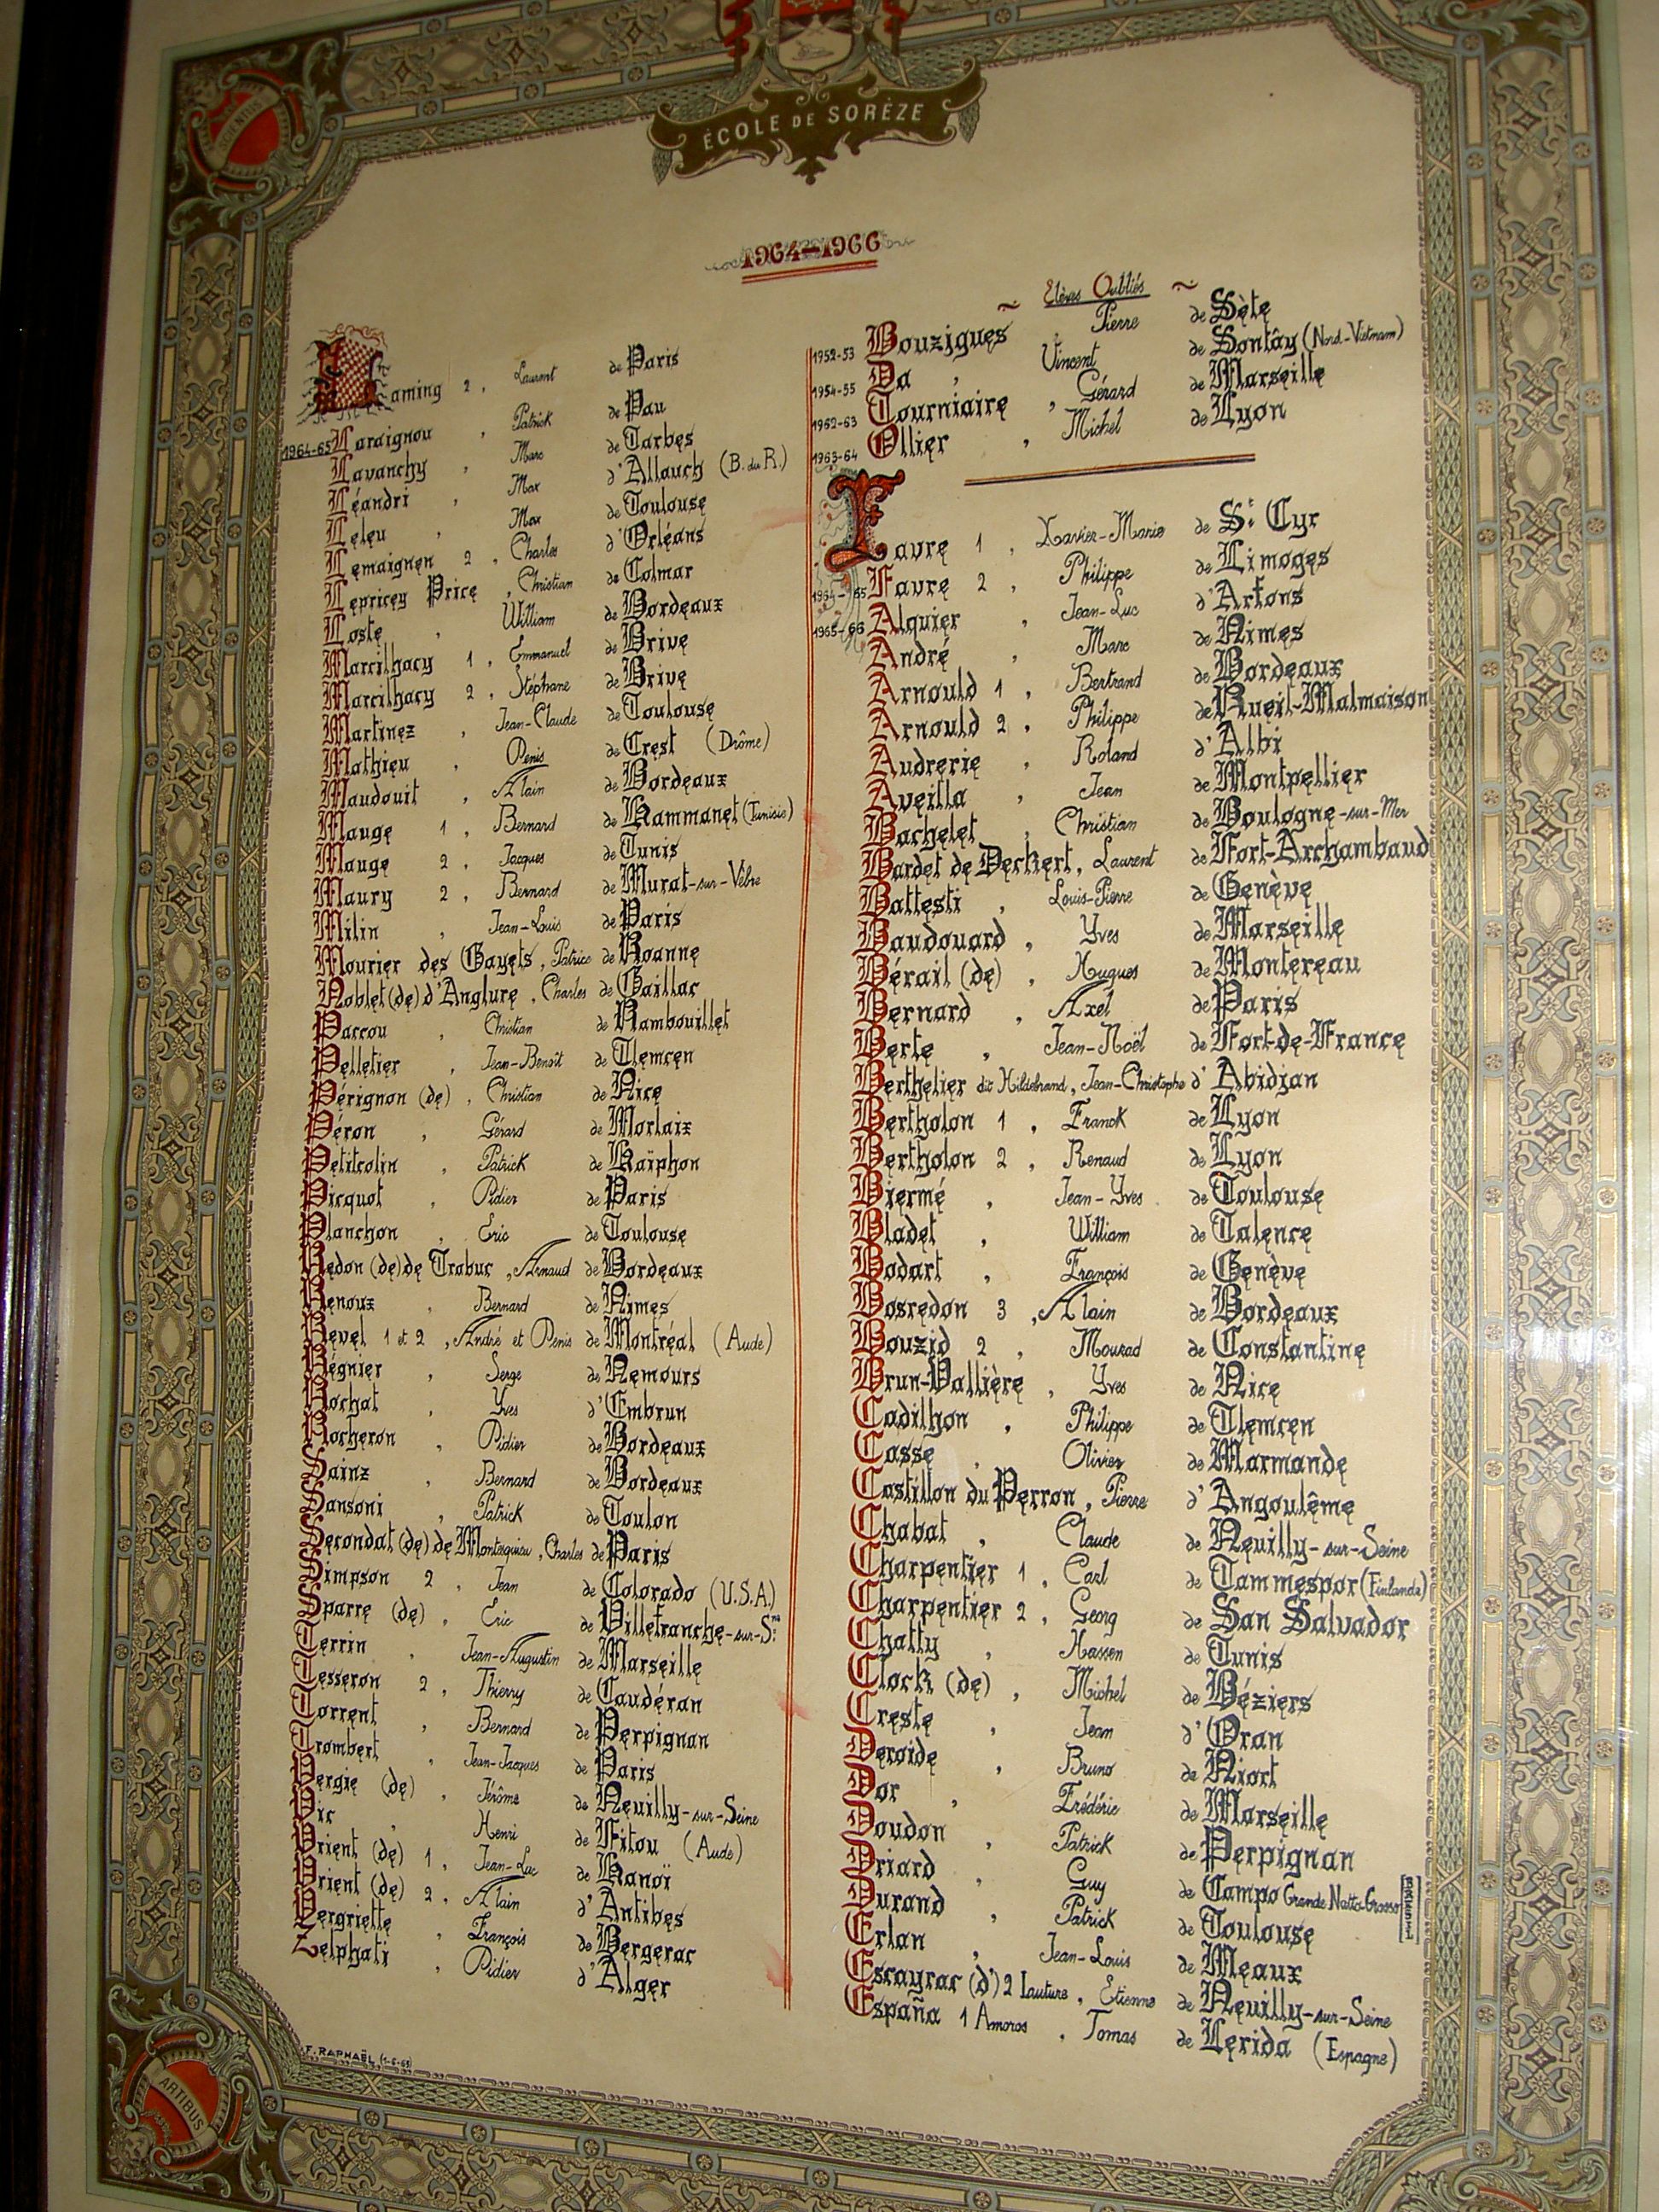 SCIENTIIS
ÉCOLE DE SORÈZE
1964-1966
Laming 2, Laurent de Paris
1964-65 Laraignou, Patrick de Pau
Lavanchy, Marc de Tarbes
Léandri, Max d'Allauch (B. du R.)
Leleu, Max de Toulouse
Lemaignen 2, Charles d'Orléans
Lepricey Price, Christian de Colmar
Loste, William de Bordeaux
Marcilhacy 1, Emmanuel de Brive
Marcilhacy 2, Stéphane de Brive
Martinez, Jean-Claude de Toulouse
Mathieu, Denis de Crest (Drôme)
Maudouit, Alain de Bordeaux
Mauge 1, Bernard de Hammanet (Tunisie)
Mauge 2, Jacques de Tunis
Maury 2, Bernard de Murat-sur-Vèbre
Milin, Jean-Louis de Paris
Mourier des Gayets, Patrice de Roanne
Noblet (de) d'Anglure, Charles de Gaillac
Paccou, Christian de Rambouillet
Pelletier, Jean-Benoît de Tlemcen
Pérignon (de), Christian de Nice
Péron, Gérard de Morlaix
Petitcolin, Patrick de Haïphon
Picquot, Didier de Paris
Planchon, Eric de Toulouse
Redon (de) de Trobuc, Arnaud de Bordeaux
Renoux, Bernard de Nimes
Revel 1 et 2, André et Denis de Montréal (Aude)
Régnier, Serge de Nemours
Rochat, Yves d'Embrun
Rocheron, Didier de Bordeaux
Sainz, Bernard de Bordeaux
Sansoni, Patrick de Toulon
Secondat (de) de Montesquieu, Charles de Paris
Simpson 2, Jean de Colorado (U.S.A.)
Sparre (de), Eric de Villefranche-sur-Sne
Terrin, Jean-Augustin de Marseille
Tesseron 2, Thierry de Caudéran
Torrent, Bernard de Perpignan
Trombert, Jean-Jacques de Paris
Vergie (de), Jérôme de Neuilly-sur-Seine
Vic, Henri de Fitou (Aude)
Vrient (de) 1, Jean-Luc de Hanoï
Vrient (de) 2, Alain d'Antibes
Vergriette, François de Bergerac
Zelphati, Didier d'Alger
F. RAPHAËL
~ Elèves Oubliés ~
1952-53 Bouzigues, Pierre de Sète
1954-55 Da, Vincent de Sontây (Nord-Vietnam)
1962-63 Tourniaire, Gérard de Marseille
1963-64 Ollier, Michel de Lyon
Favre 1, Xavier-Marie de St Cyr
1964-65 Favre 2, Philippe de Limoges
1965-66 Alquier, Jean-Luc d'Arfons
André, Marc de Nimes
Arnould 1, Bertrand de Bordeaux
Arnould 2, Philippe de Rueil-Malmaison
Audrerie, Roland d'Albi
Aveilla, Jean de Montpellier
Bachelet, Christian de Boulogne-sur-Mer
Bardet de Deckert, Laurent de Fort-Archambaud
Battesti, Louis-Pierre de Genève
Baudouard, Yves de Marseille
Bérail (de), Hugues de Montereau
Bernard, Axel de Paris
Berte, Jean-Noël de Fort-de-France
Berthelier dit Hildebrand, Jean-Christophe d'Abidjan
Bertholon 1, Franck de Lyon
Bertholon 2, Renaud de Lyon
Biermé, Jean-Yves de Toulouse
Bladet, William de Talence
Bodart, François de Genève
Bosredon 3, Alain de Bordeaux
Bouzid 2, Mourad de Constantine
Brun-Vallière, Yves de Nice
Cadilhon, Philippe de Tlemcen
Casse, Olivier de Marmande
Castillon du Perron, Pierre d'Angoulême
Chabat, Claude de Neuilly-sur-Seine
Charpentier 1, Carl de Tammespor (Finlande)
Charpentier 2, Georg de San Salvador
Chatty, Hassen de Tunis
Clock (de), Michel de Béziers
Creste, Jean d'Oran
Deroide, Bruno de Niort
Dor, Frédéric de Marseille
Doudon, Patrick de Perpignan
Driard, Guy de Campo Grande Natta Grosso BRESIL
Durand, Patrick de Toulouse
Erlan, Jean-Louis de Meaux
Escayrac (d') 2 Lauture, Etienne de Neuilly-sur-Seine
España 1 Amoros, Tomas de Lerida (Espagne)
ARTIBUS